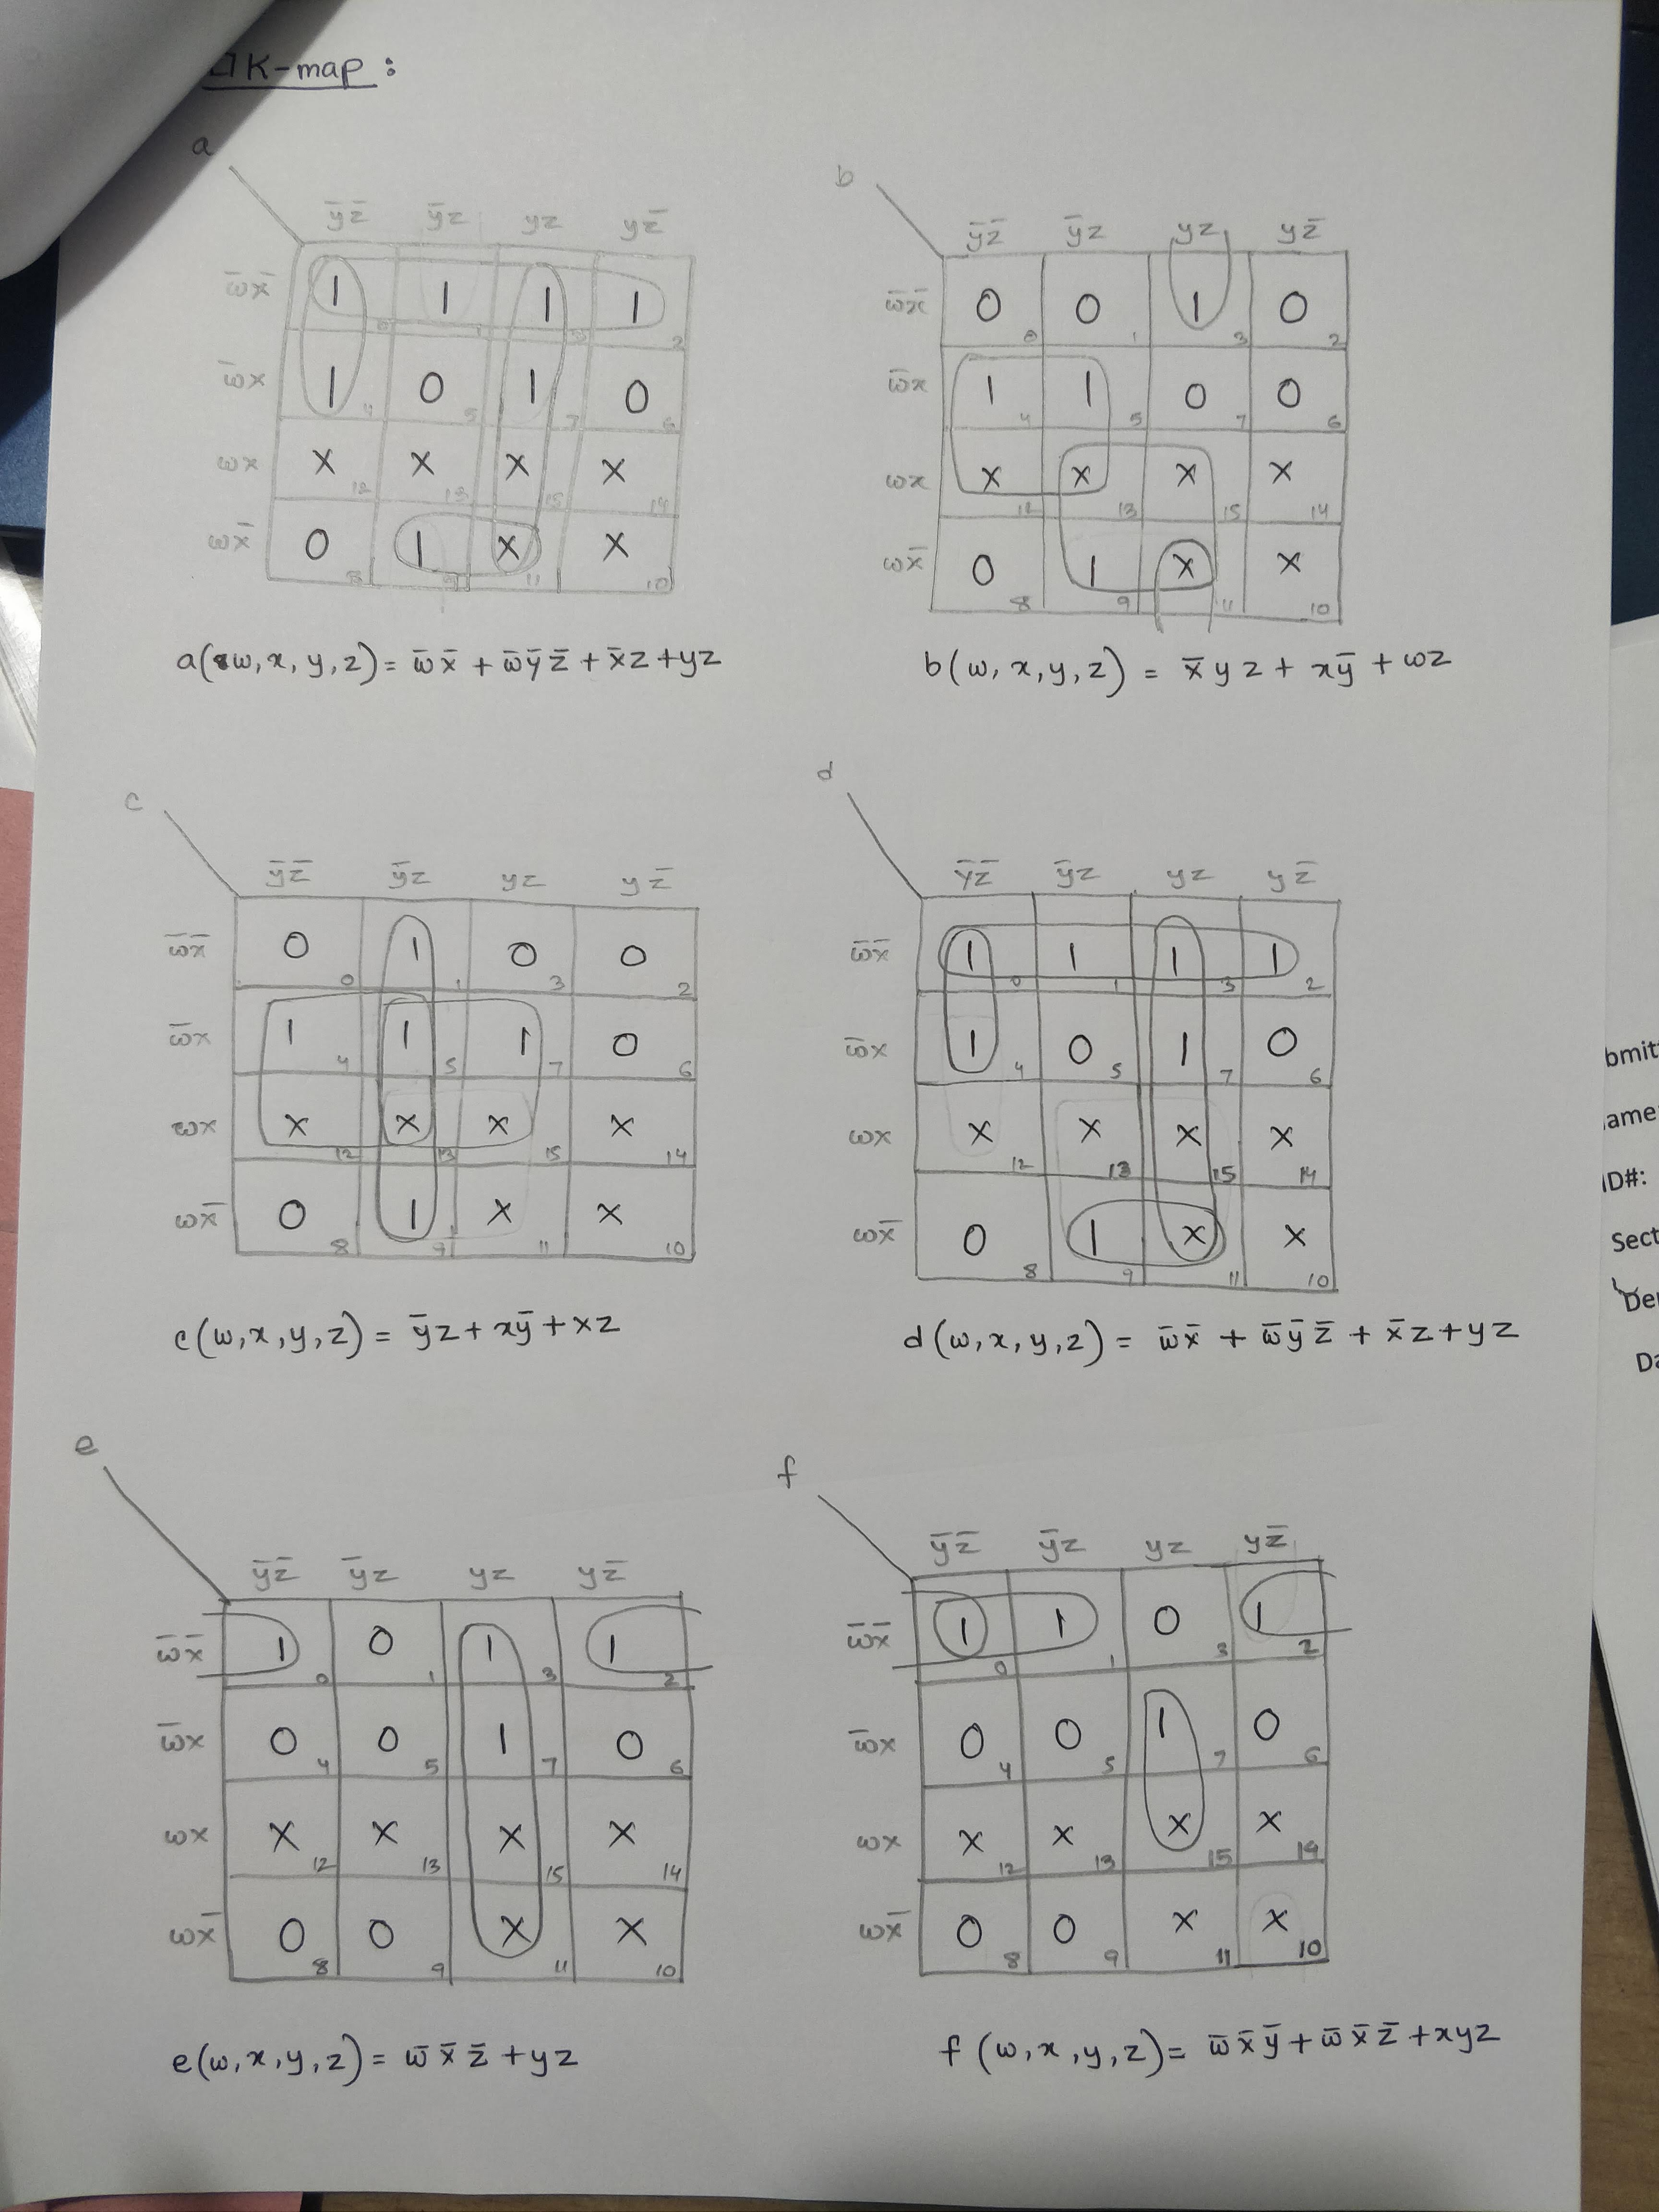 K-map :
a
y̅z̅ y̅z yz yz̅
w̅x̅ 1 0 1 1 1 3 1 2
w̅x 1 4 0 5 1 7 0 6
wx X 12 X 13 X 15 X 14
wx̅ 0 8 1 9 X 11 X 10
a(w, x, y, z) = w̅x̅ + w̅y̅z̅ + x̅z + yz
b
y̅z̅ y̅z yz yz̅
w̅x̅ 0 0 0 1 1 3 0 2
w̅x 1 4 1 5 0 7 0 6
wx X 12 X 13 X 15 X 14
wx̅ 0 8 1 9 X 11 X 10
b(w, x, y, z) = x̅yz + xy̅ + wz
c
y̅z̅ y̅z yz yz̅
w̅x̅ 0 0 1 1 0 3 0 2
w̅x 1 4 1 5 1 7 0 6
wx X 12 X 13 X 15 X 14
wx̅ 0 8 1 9 X 11 X 10
c(w, x, y, z) = y̅z + xy̅ + xz
d
y̅z̅ y̅z yz yz̅
w̅x̅ 1 0 1 1 1 3 1 2
w̅x 1 4 0 5 1 7 0 6
wx X 12 X 13 X 15 X 14
wx̅ 0 8 1 9 X 11 X 10
d(w, x, y, z) = w̅x̅ + w̅y̅z̅ + x̅z + yz
e
y̅z̅ y̅z yz yz̅
w̅x̅ 1 0 0 1 1 3 1 2
w̅x 0 4 0 5 1 7 0 6
wx X 12 X 13 X 15 X 14
wx̅ 0 8 0 9 X 11 X 10
e(w, x, y, z) = w̅x̅z̅ + yz
f
y̅z̅ y̅z yz yz̅
w̅x̅ 1 0 1 1 0 3 1 2
w̅x 0 4 0 5 1 7 0 6
wx X 12 X 13 X 15 X 14
wx̅ 0 8 0 9 X 11 X 10
f(w, x, y, z) = w̅x̅y̅ + w̅x̅z̅ + xyz
ID#:
Sect